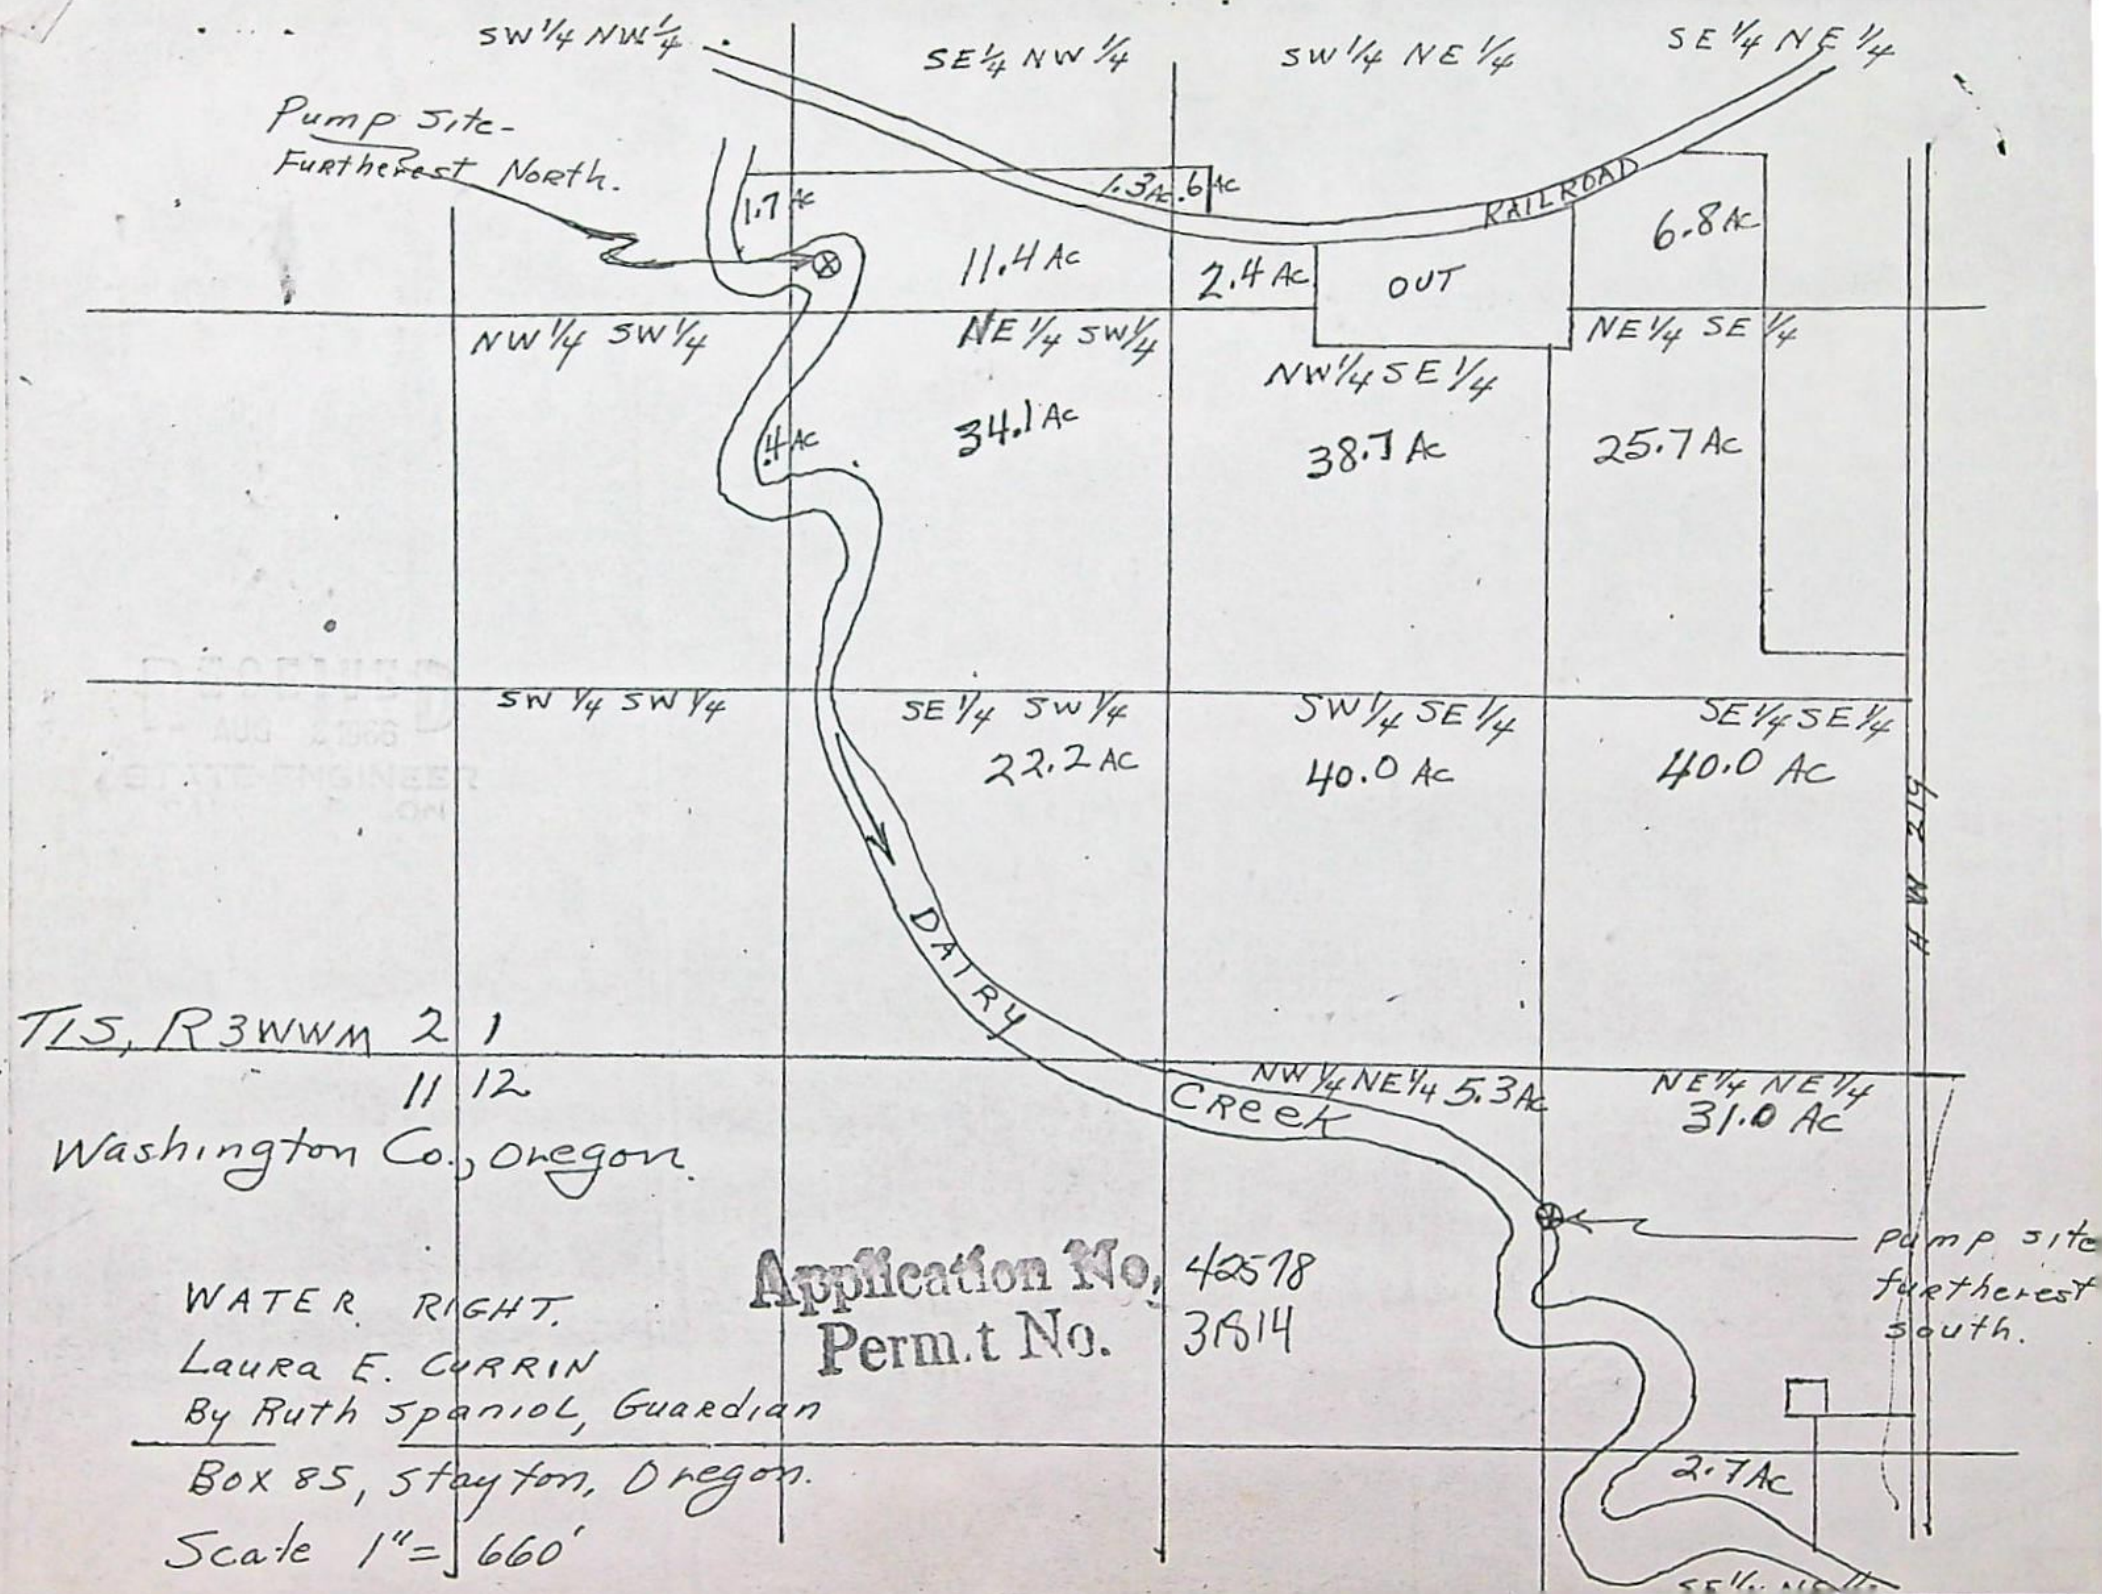 SW 1/4 NW 1/4
SE 1/4 NW 1/4
SW 1/4 NE 1/4
SE 1/4 NE 1/4
Pump Site-
Furtherest North.
1.7 Ac
1.3 Ac
.6 Ac
RAILROAD
6.8 Ac
11.4 Ac
2.4 Ac
OUT
NW 1/4 SW 1/4
NE 1/4 SW 1/4
NW 1/4 SE 1/4
NE 1/4 SE 1/4
.4 Ac
34.1 Ac
38.7 Ac
25.7 Ac
SW 1/4 SW 1/4
SE 1/4 SW 1/4
22.2 AC
SW 1/4 SE 1/4
40.0 AC
SE 1/4 SE 1/4
40.0 AC
HW 219
DAIRY
CREEK
T1S, R3WWM 2 1
11 12
Washington Co., Oregon.
NW 1/4 NE 1/4 5.3 Ac
NE 1/4 NE 1/4
31.0 AC
pump site
furtherest
south.
Application No. 42578
Perm.t No. 31814
WATER RIGHT.
Laura E. CURRIN
By Ruth Spaniol, Guardian
Box 85, Stayton, Oregon.
Scale 1"= 660'
2.7 AC